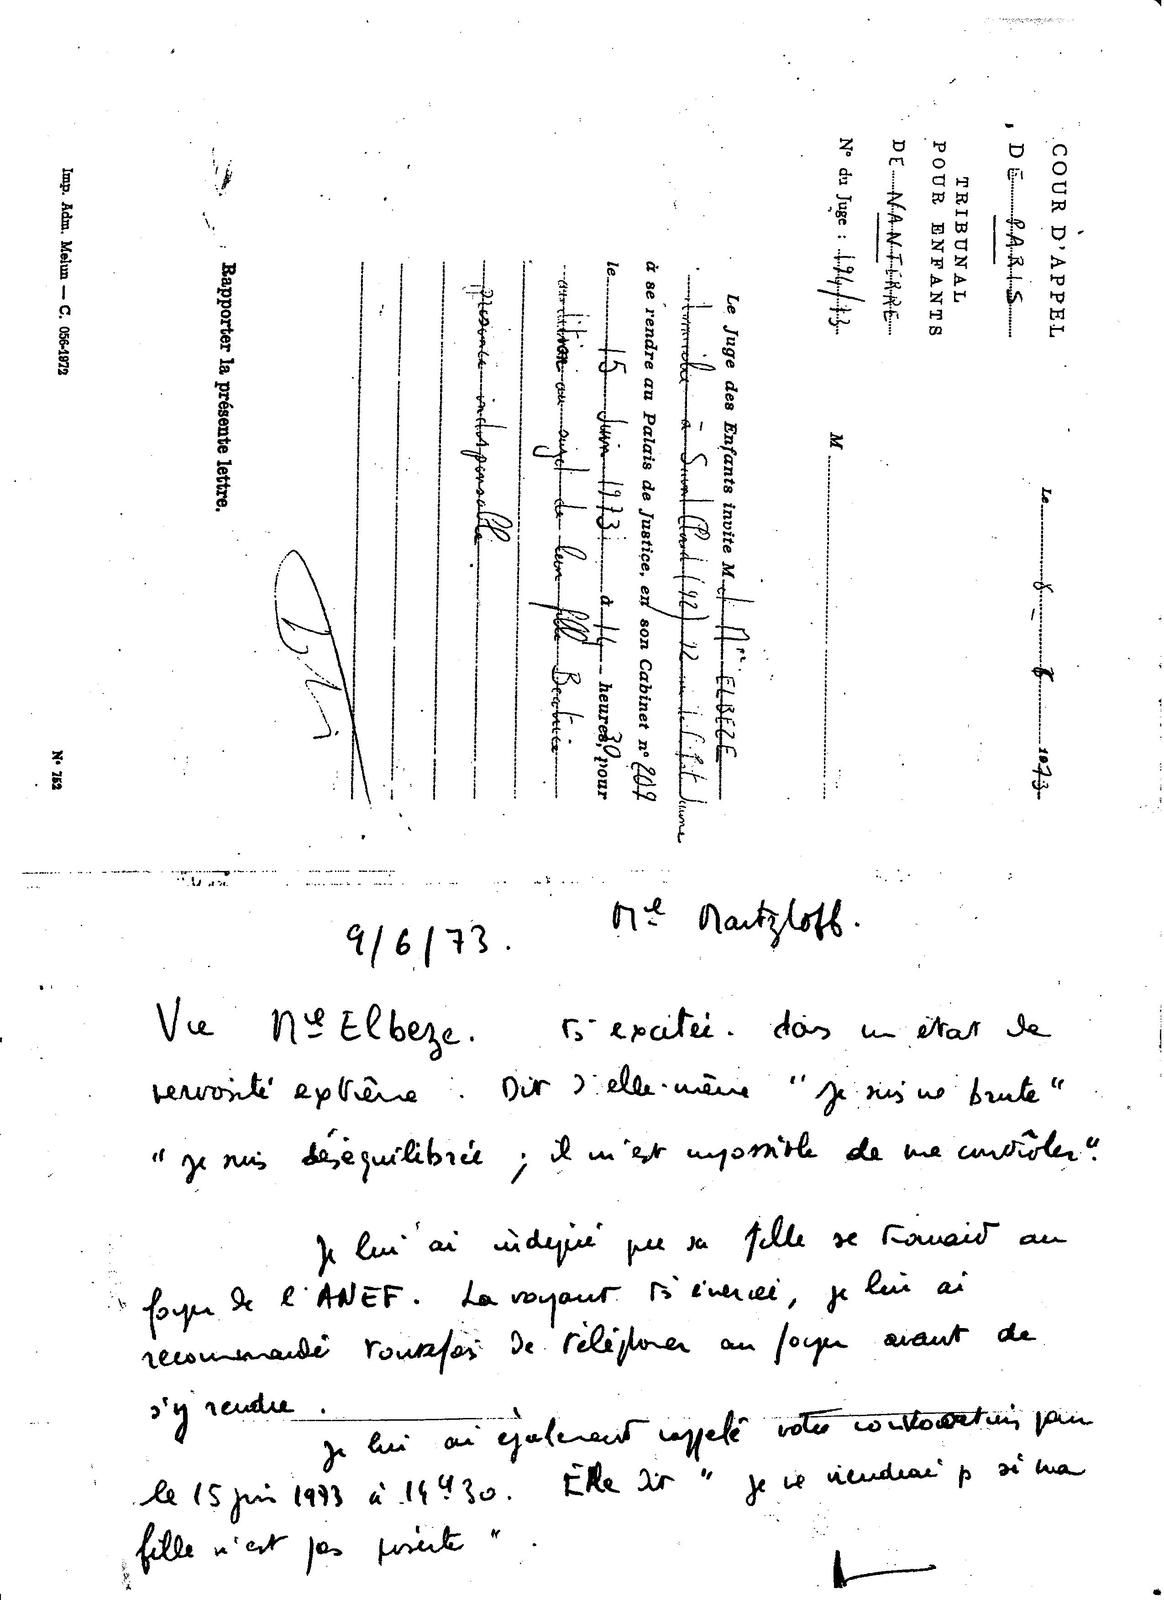 COUR D'APPEL
DE PARIS
TRIBUNAL
POUR ENFANTS
DE NANTERRE
N° du Juge : 194/73
Le 8 - 6 1973
M
Le Juge des Enfants invite M et Mme ELBEZE
à Saint Cloud (92) 12
à se rendre au Palais de Justice, en son Cabinet n° 209
le 15 Juin 1973 à 14 heures, 30 pour
audition au sujet de leur fille Beatrice
présence indispensable
Rapporter la présente lettre.
Imp. Adm. Melun — C. 056-1972
N° 752
Mel Martzloff.
9/6/73.
Vu Me Elbeze. Ts excitée. dans un état de
nervosité extrême. Dit d'elle-même "je suis une brute"
"je suis déséquilibrée ; il m'est impossible de me contrôler".
Je lui ai indiqué que sa fille se trouvait au
foyer de l'ANEF. La voyant ts énervée, je lui ai
recommandé toutefois de téléphoner au foyer avant de
s'y rendre.
Je lui ai également rappelé votre convocation pour
le 15 juin 1973 à 14H30. Elle dit "je ne viendrai p si ma
fille n'est pas présente".